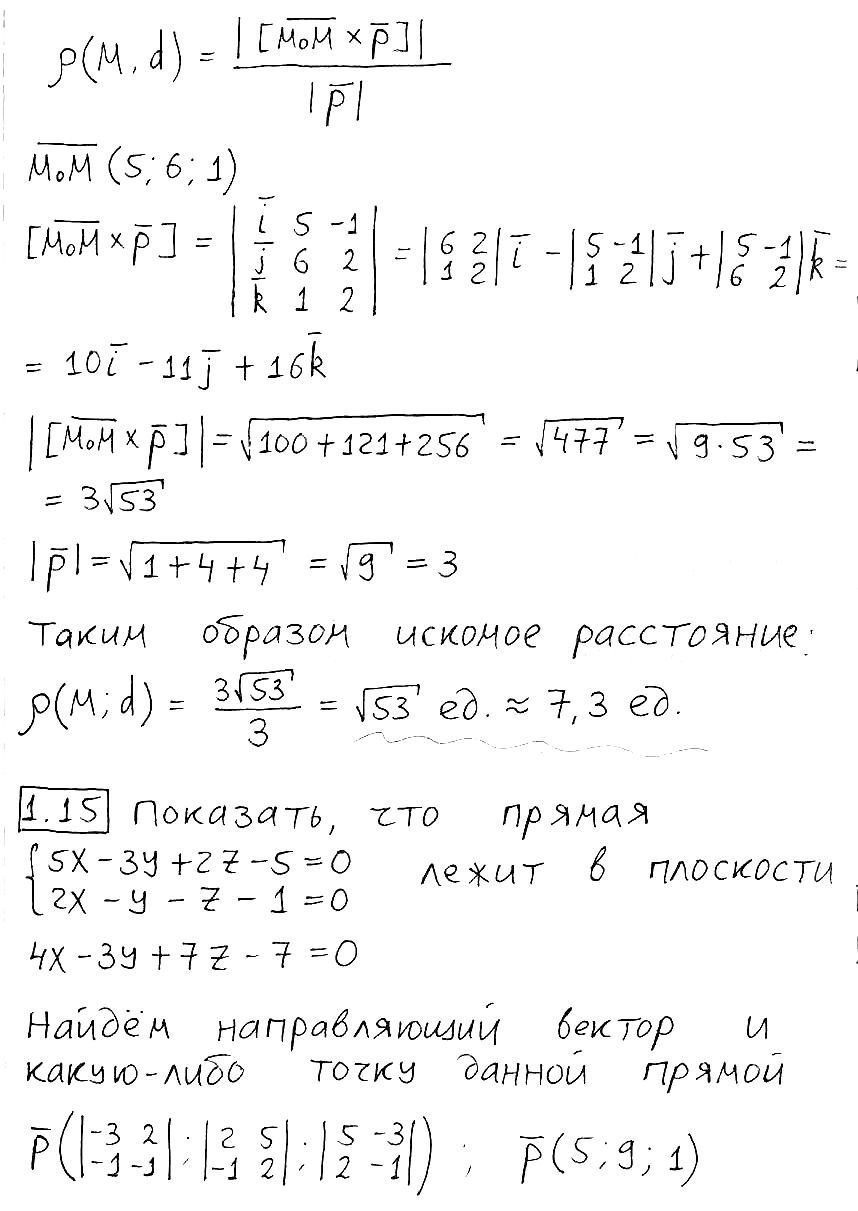 ρ(M, d) = |[M₀M × p̄]| / |p̄|
M₀M (5; 6; 1)
[M₀M × p̄] = | i̅ 5 -1 ; j̅ 6 2 ; k̅ 1 2 | = | 6 2 ; 1 2 | i̅ - | 5 -1 ; 1 2 | j̅ + | 5 -1 ; 6 2 | k̅ =
= 10i̅ - 11j̅ + 16k̅
|[M₀M × p̄]| = √(100 + 121 + 256) = √477 = √(9·53) =
= 3√53
|p̄| = √(1 + 4 + 4) = √9 = 3
Таким образом искомое расстояние:
ρ(M; d) = 3√53 / 3 = √53 ед. ≈ 7,3 ед.
1.15 Показать, что прямая
{ 5x - 3y + 2z - 5 = 0 ; 2x - y - z - 1 = 0 лежит в плоскости
4x - 3y + 7z - 7 = 0
Найдём направляющий вектор и
какую-либо точку данной прямой
p̄ ( | -3 2 ; -1 -1 | ; | 2 5 ; -1 2 | ; | 5 -3 ; 2 -1 | ) ; p̄ (5; 9; 1)